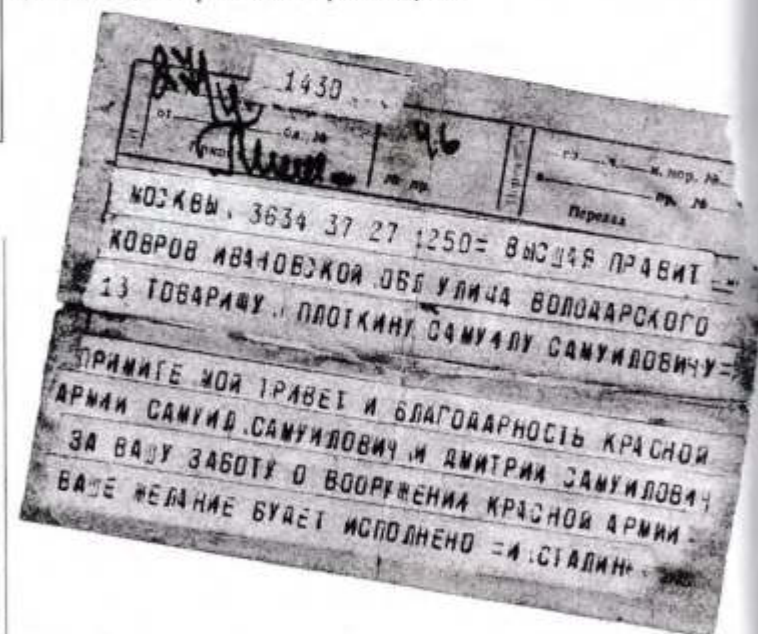 1430
от
сл. №
46
№ пр.
го ч. м. пор. №
пр. №
Передал
МОСКВЫ. 3634 37 27 1250= ВЫСШАЯ ПРАВИТ
КОВРОВ ИВАНОВСКОЙ ОБЛ УЛИЦА ВОЛОДАРСКОГО
13 ТОВАРИЩУ. ПЛОТКИНУ САМУИЛУ САМУИЛОВИЧУ=
ПРИМИТЕ МОЙ ПРИВЕТ И БЛАГОДАРНОСТЬ КРАСНОЙ
АРМИИ САМУИЛ.САМУИЛОВИЧ.И ДМИТРИЙ САМУИЛОВИЧ
ЗА ВАШУ ЗАБОТУ О ВООРУЖЕНИИ КРАСНОЙ АРМИИ-
ВАШЕ ЖЕЛАНИЕ БУДЕТ ИСПОЛНЕНО =И.СТАЛИН